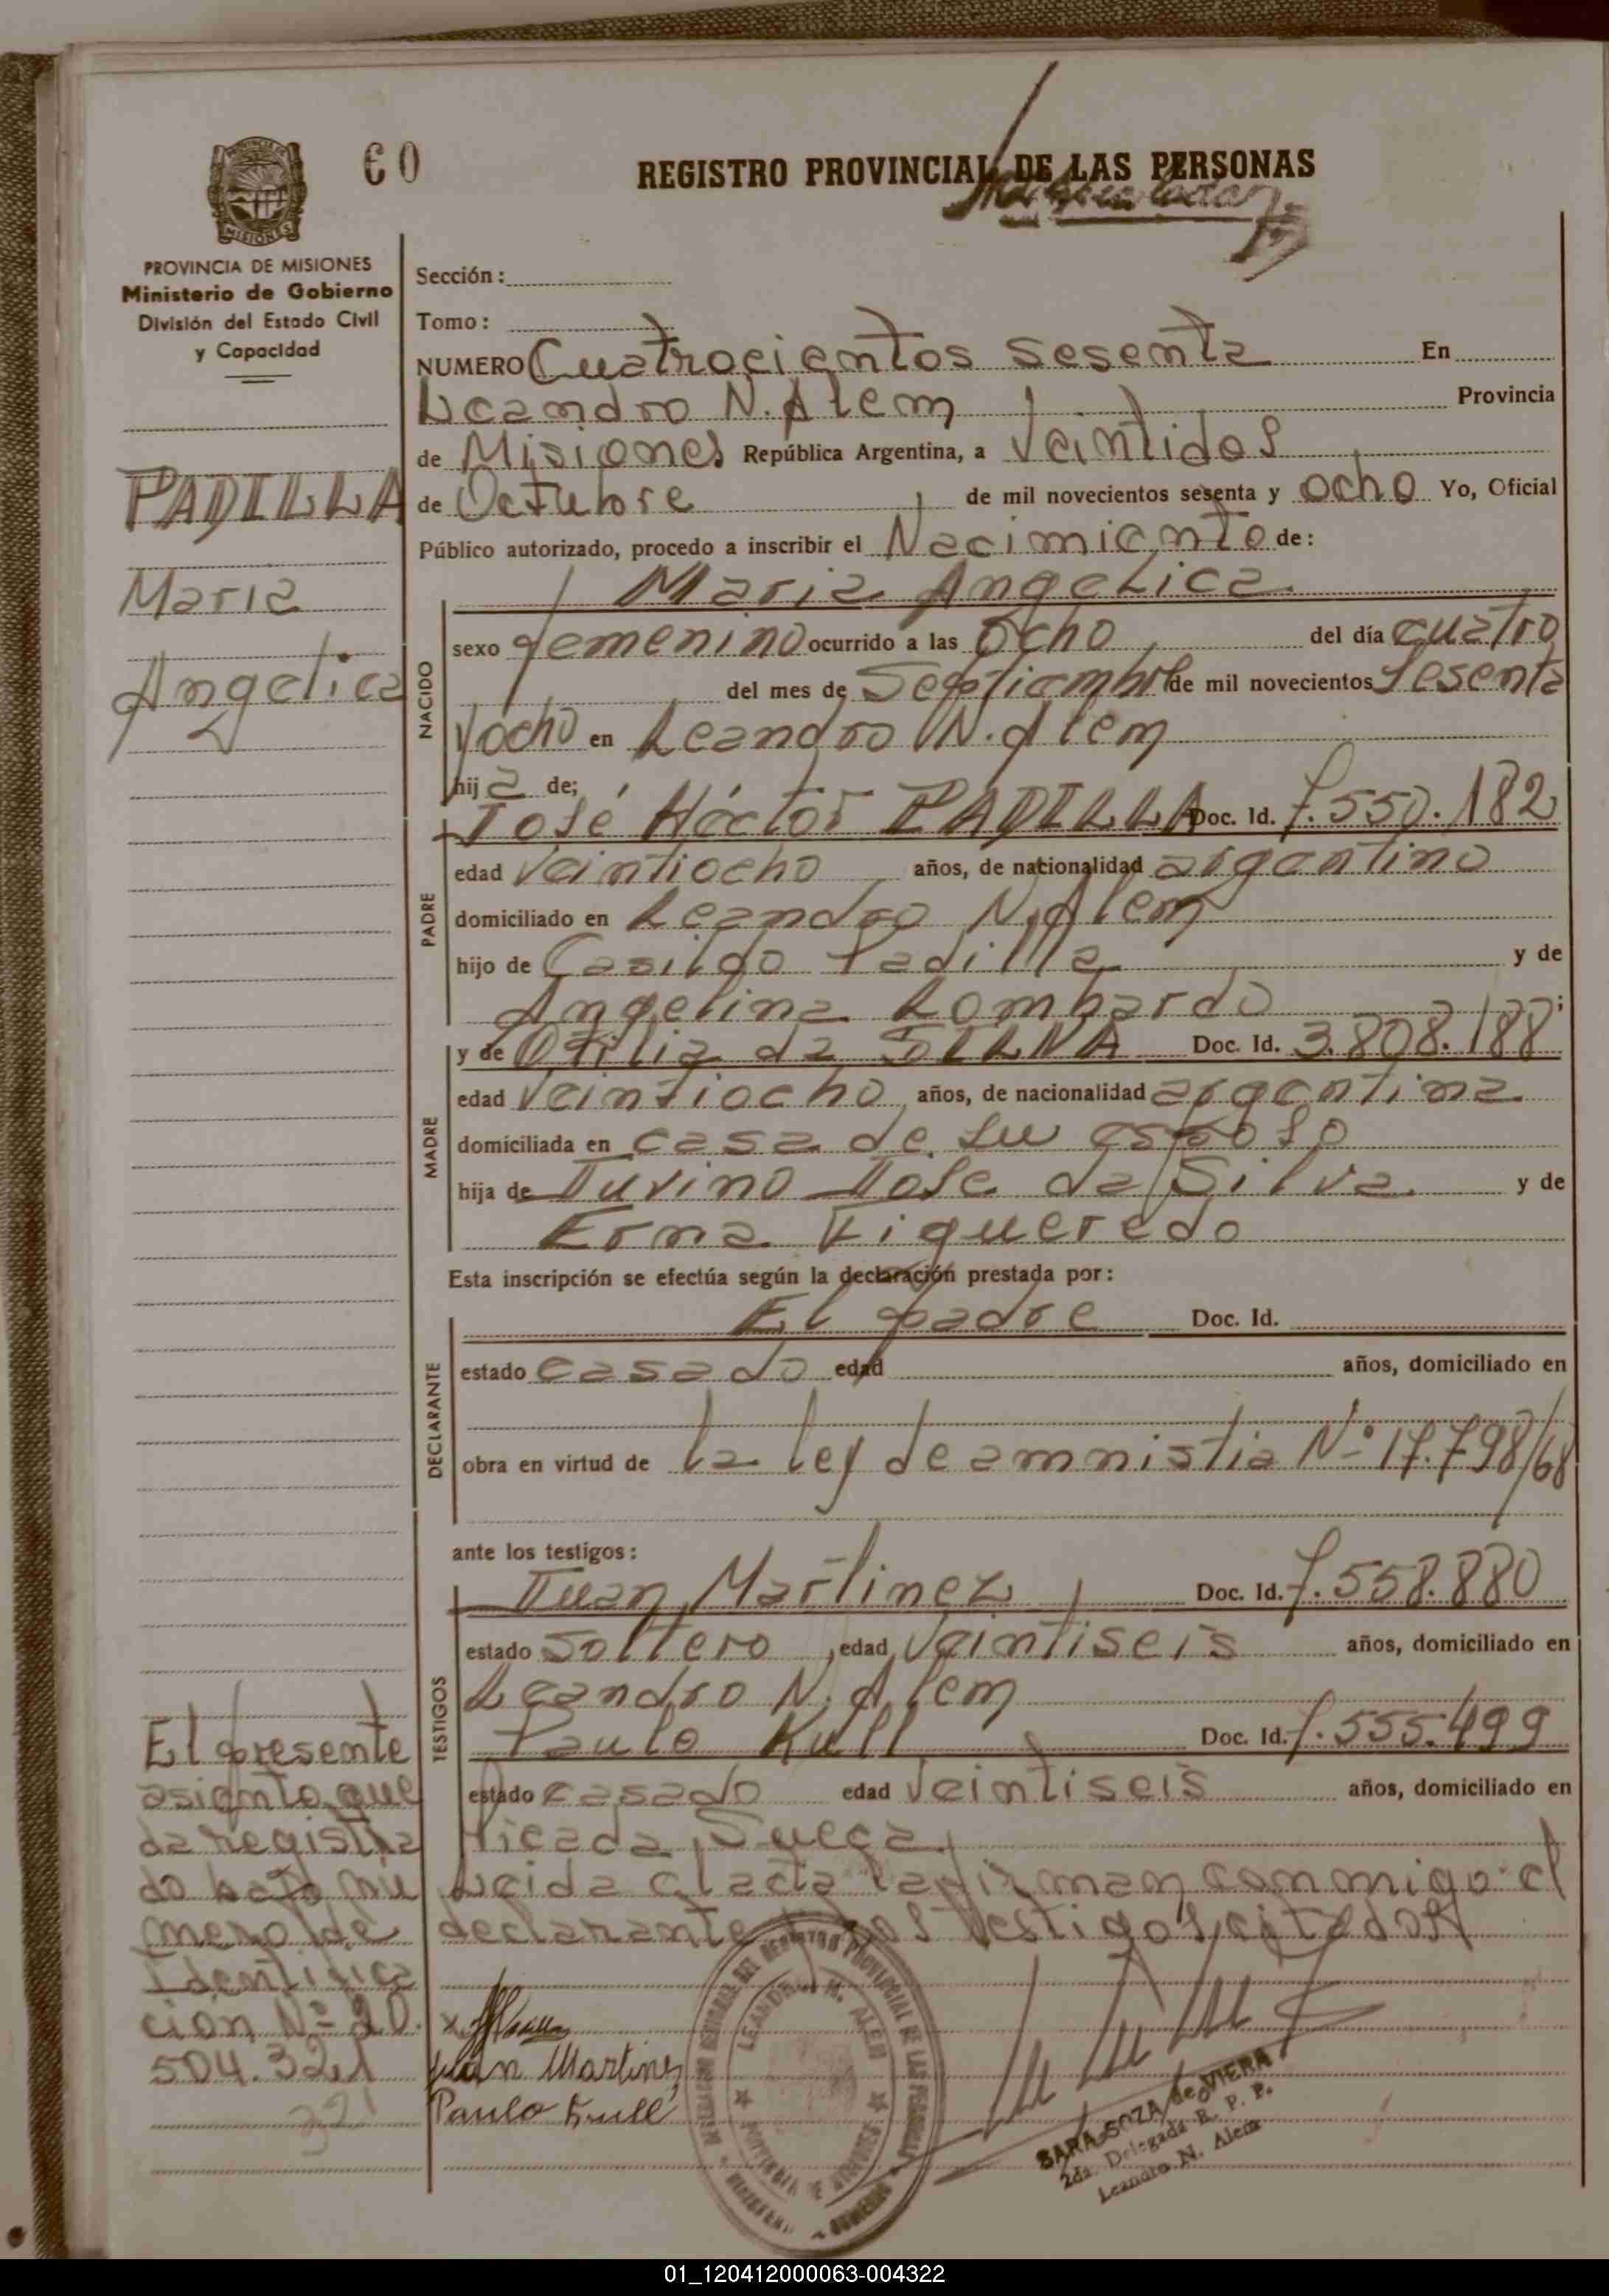 60
REGISTRO PROVINCIAL DE LAS PERSONAS
MISIONES
PROVINCIA DE MISIONES
Ministerio de Gobierno
División del Estado Civil
y Capacidad
PADILLA
Maria
Angelica
Sección:
Tomo:
NUMERO Cuatrocientos sesenta En
Leandro N. Alem Provincia
de Misiones República Argentina, a Veintidos
de Octubre de mil novecientos sesenta y ocho Yo, Oficial
Público autorizado, procedo a inscribir el Nacimiento de:
Maria Angelica
NACIDO
sexo femenino ocurrido a las Ocho del día cuatro
del mes de Septiembre de mil novecientos Sesenta
y ocho en Leandro N. Alem
hija de;
PADRE
José Héctor PADILLA Doc. Id. 7.550.182
edad Veintiocho años, de nacionalidad argentino
domiciliado en Leandro N. Alem
hijo de Casildo Padilla y de
Angelina Lombardo;
MADRE
y de Otilia da SILVA Doc. Id. 3.808.188
edad Veintiocho años, de nacionalidad argentina
domiciliada en casa de su esposo
hija de José da Silva y de
Erma Figueredo
Esta inscripción se efectúa según la declaración prestada por:
DECLARANTE
El padre Doc. Id.
estado casado edad años, domiciliado en
obra en virtud de la ley de amnistia Nº 17.798/68
ante los testigos:
TESTIGOS
Juan Martinez Doc. Id. 7.558.880
estado soltero, edad Veintiseis años, domiciliado en
Leandro N. Alem
Paulo Kull Doc. Id. 7.555.499
estado casado edad Veintiseis años, domiciliado en
Picada Sueca
Leida el acta la firman conmigo el
declarante y los testigos citados
El presente
asiento que
da registra
do bajo nú
mero de
Identifica
ción Nº 20.
504.321
321
Juan Martinez
Paulo Kull
LEANDRO N. ALEM
SARA SOZA de VIERA
2da. Delegada R. P. P.
Leandro N. Alem
01_120412000063-004322